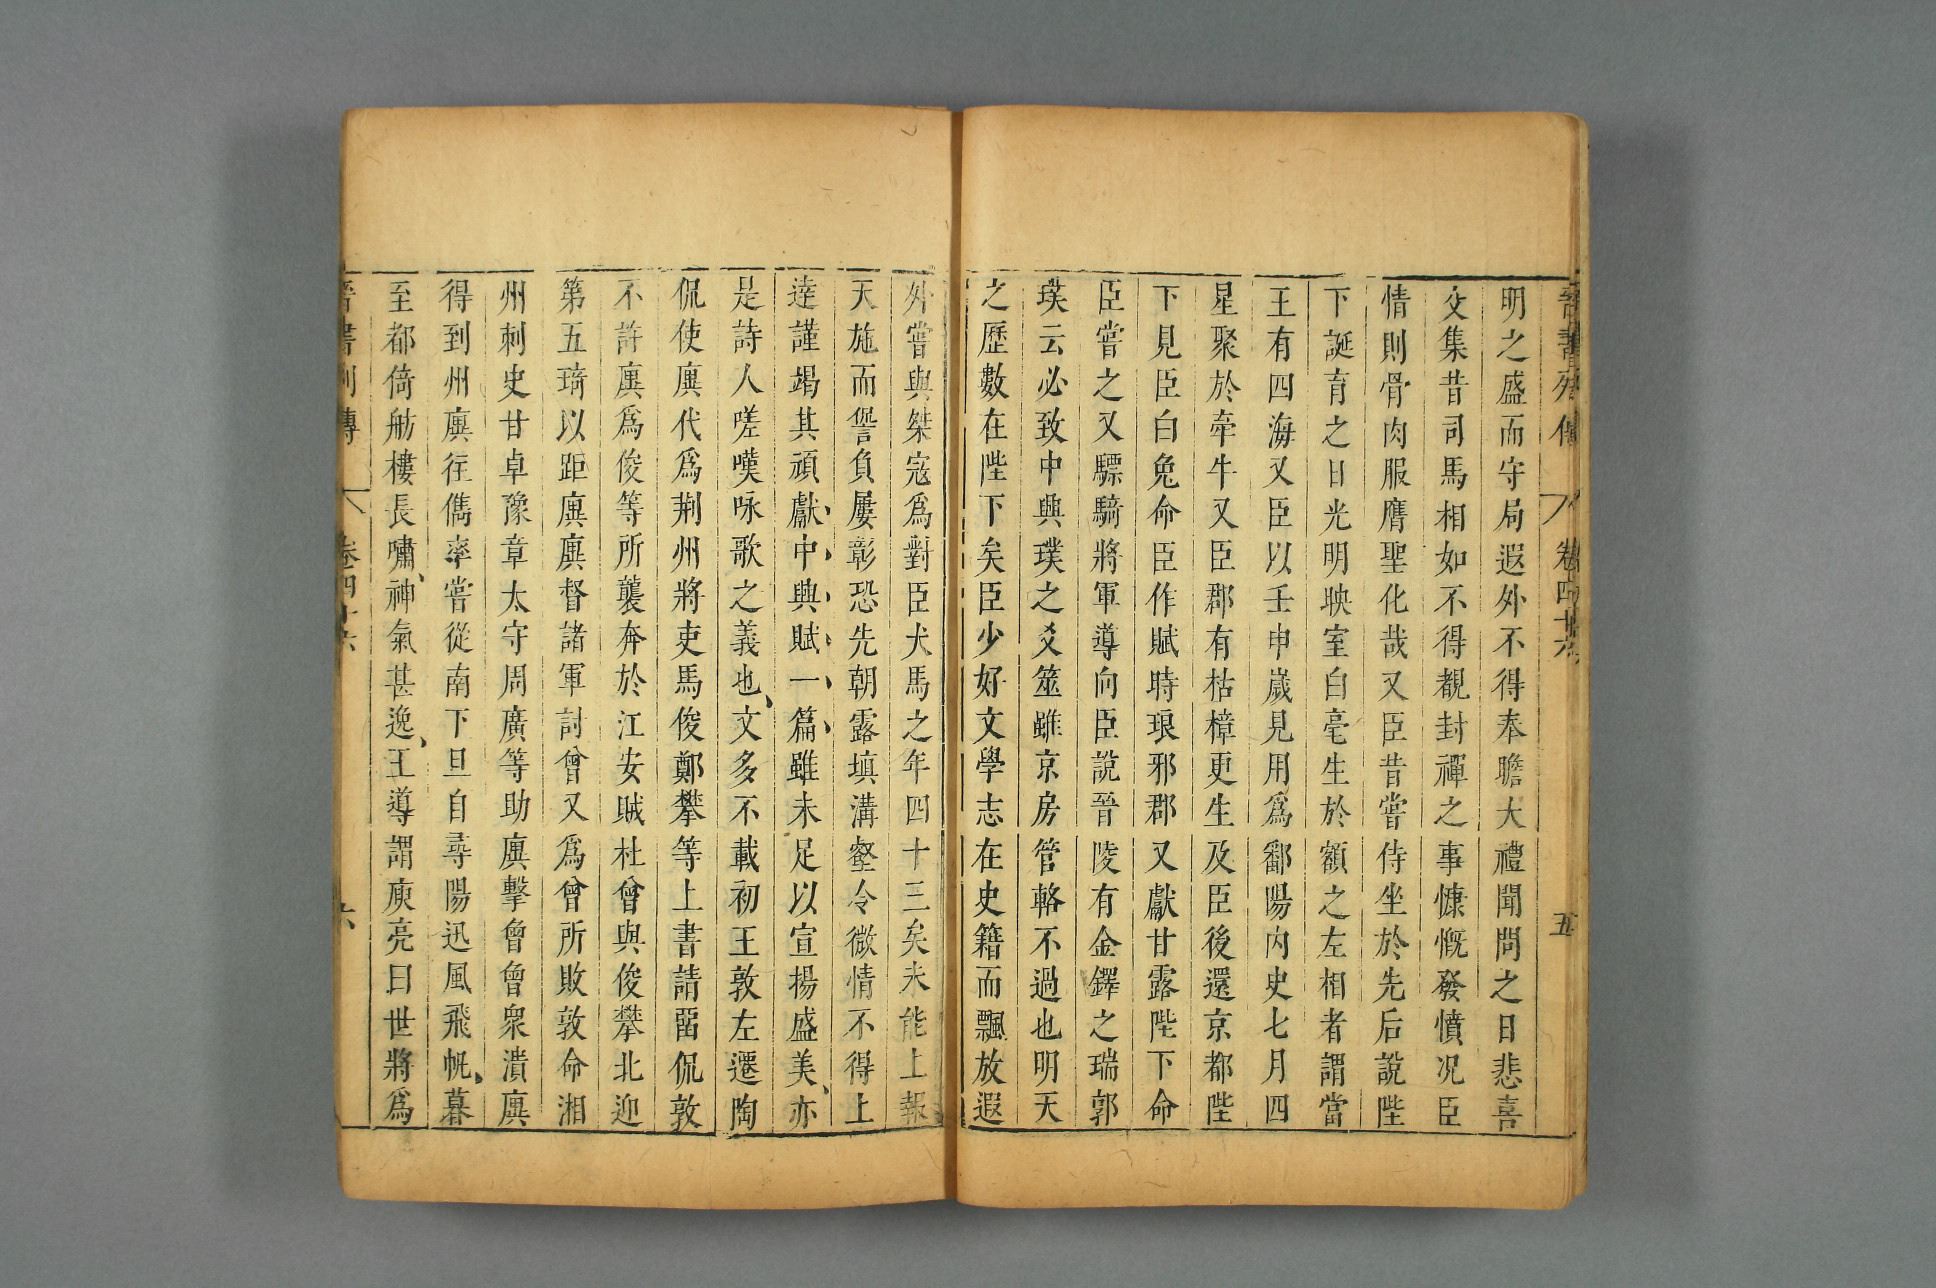 晉書列傳 卷四十六 五
明之盛而守局遐外不得奉瞻大禮聞問之日悲喜
交集昔司馬相如不得覩封禪之事慷慨發憤況臣
情則骨肉服膺聖化哉又臣昔嘗侍坐於先后說陛
下誕育之日光明映室白毫生於額之左相者謂當
王有四海又臣以壬申歲見用爲鄱陽內史七月四
星聚於牽牛又臣郡有枯樟更生及臣後還京都陛
下見臣白兔命臣作賦時琅邪郡又獻甘露陛下命
臣嘗之又驃騎將軍導向臣說晉陵有金鐸之瑞郭
璞云必致中興璞之爻筮雖京房管輅不過也明天
之歷數在陛下矣臣少好文學志在史籍而飄放遐
外嘗與桀寇爲對臣犬馬之年四十三矣未能上報
天施而諐負屢彰恐先朝露填溝壑令微情不得上
達謹竭其頑獻中興賦一篇雖未足以宣揚盛美亦
是詩人嗟嘆咏歌之義也文多不載初王敦左遷陶
侃使廙代爲荆州將吏馬俊鄭攀等上書請留侃敦
不許廙爲俊等所襲奔於江安賊杜曾與俊攀北迎
第五琦以距廙廙督諸軍討曾又爲曾所敗敦命湘
州刺史甘卓豫章太守周廣等助廙擊曾曾衆潰廙
得到州廙在儁率嘗從南下旦自尋陽迅風飛帆暮
至都倚舫樓長嘯神氣甚逸王導謂庾亮曰世將爲
晉書列傳 卷四十六 六